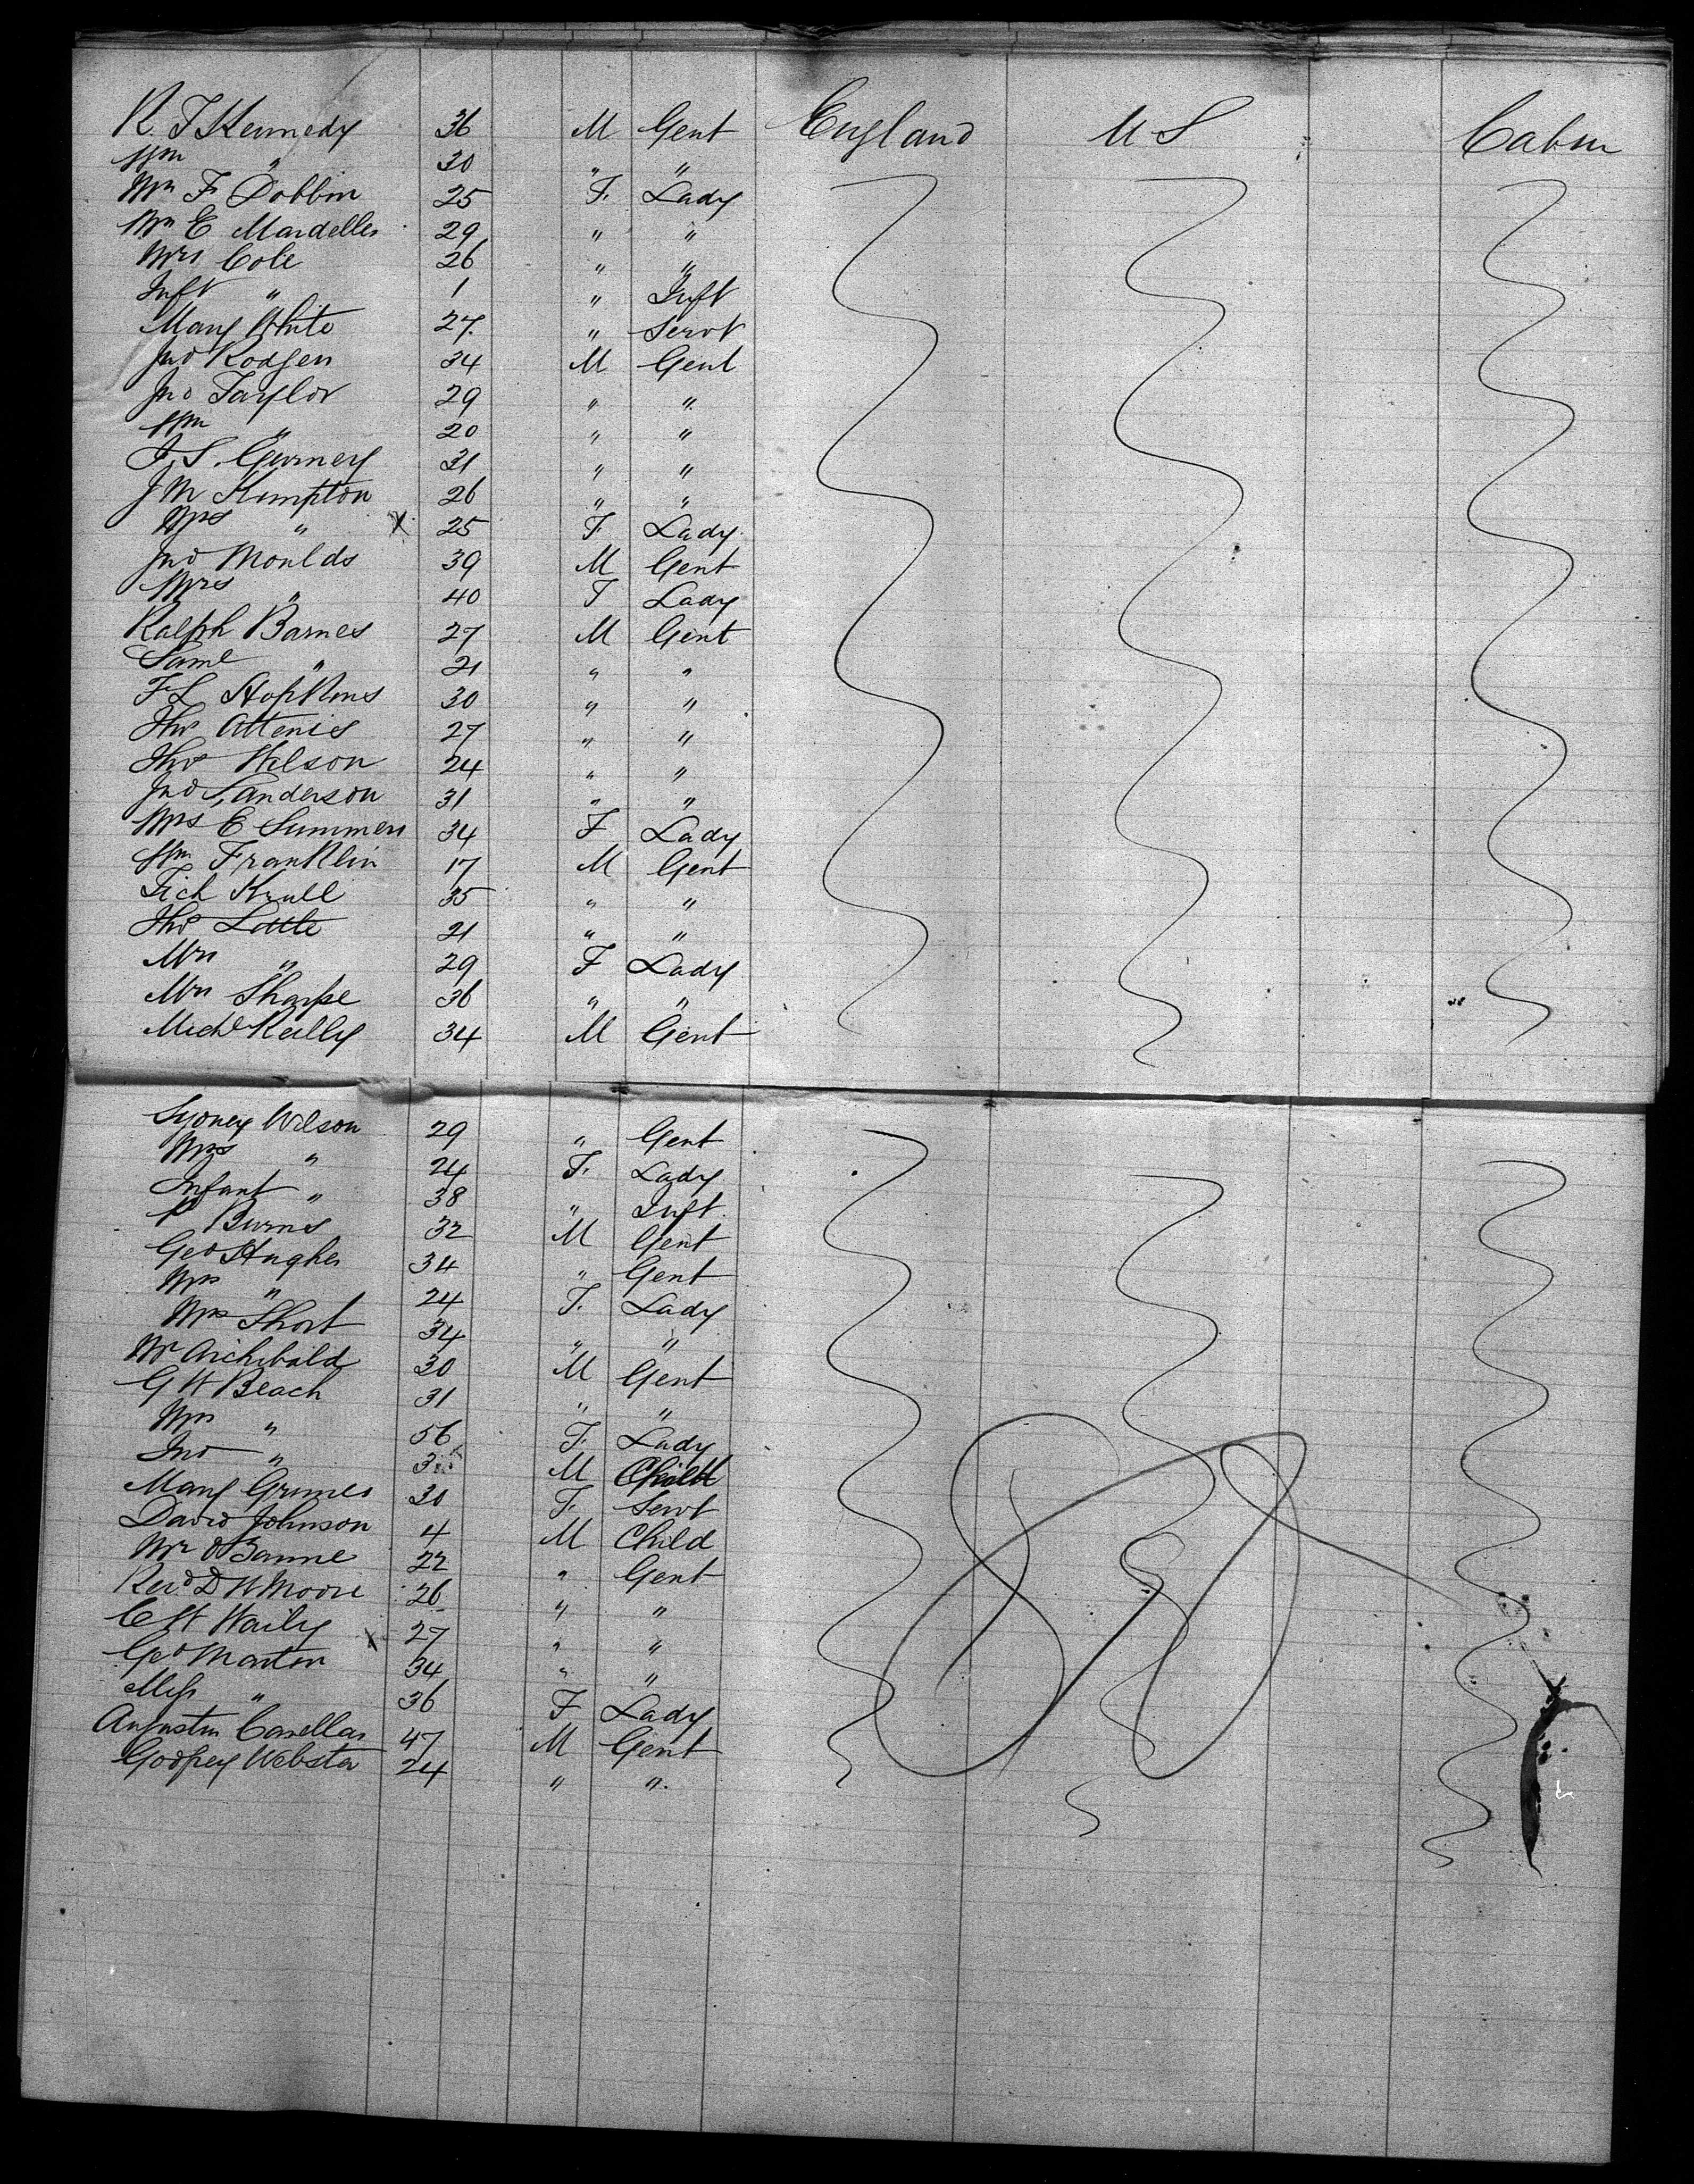 R. F Kennedy 36 M Gent England U S Cabin
Wm " 30 " "
Mrs F Dobbin 25 F. Lady
Mrs E Mardelles 29 " "
Mrs Cole 26 " "
Inft " 1 " Inft
Mary White 27 " Servt
Jno Rodgers 34 M Gent
Jno Taylor 29 " "
Wm " 20 " "
J. S. Gurney 31 " "
J M Kimpton 26 " "
Mrs " X 25 F Lady
Jno Moulds 39 M Gent
Mrs " 40 F Lady
Ralph Barnes 27 M Gent
Saml " 21 " "
F L Hopkins 30 " "
Thos Attenis 27 " "
Thos Wilson 24 " "
Jno Sanderson 31 " "
Mrs E Summers 34 F Lady
Wm Franklin 17 M Gent
Fich Krull 35 " "
Thos Little 21 " "
Mrs " 29 F Lady
Mrs Sharpe 36 " "
Michl Reilly 34 M Gent
Sydney Wilson 29 " Gent
Mrs " 24 F. Lady
Infant " 38 " Inft
P Burns 32 M Gent
Geo Hughes 34 " Gent
Mrs " 24 F. Lady
Mrs Short 34 " "
Mr Archibald 30 M Gent
G H Beach 31 " "
Mrs " 56 F. Lady
Jno " 3 M Child
Mary Grimes 30 F. Servt
David Johnson 4 M Child
Mr O'Banne 22 " Gent
Revd D W Moore 26 " "
C H Waily X 27 " "
Geo Martin 34 " "
Miss " 36 F Lady
Augustin Casellas 47 M Gent
Godfrey Webster 24 " "